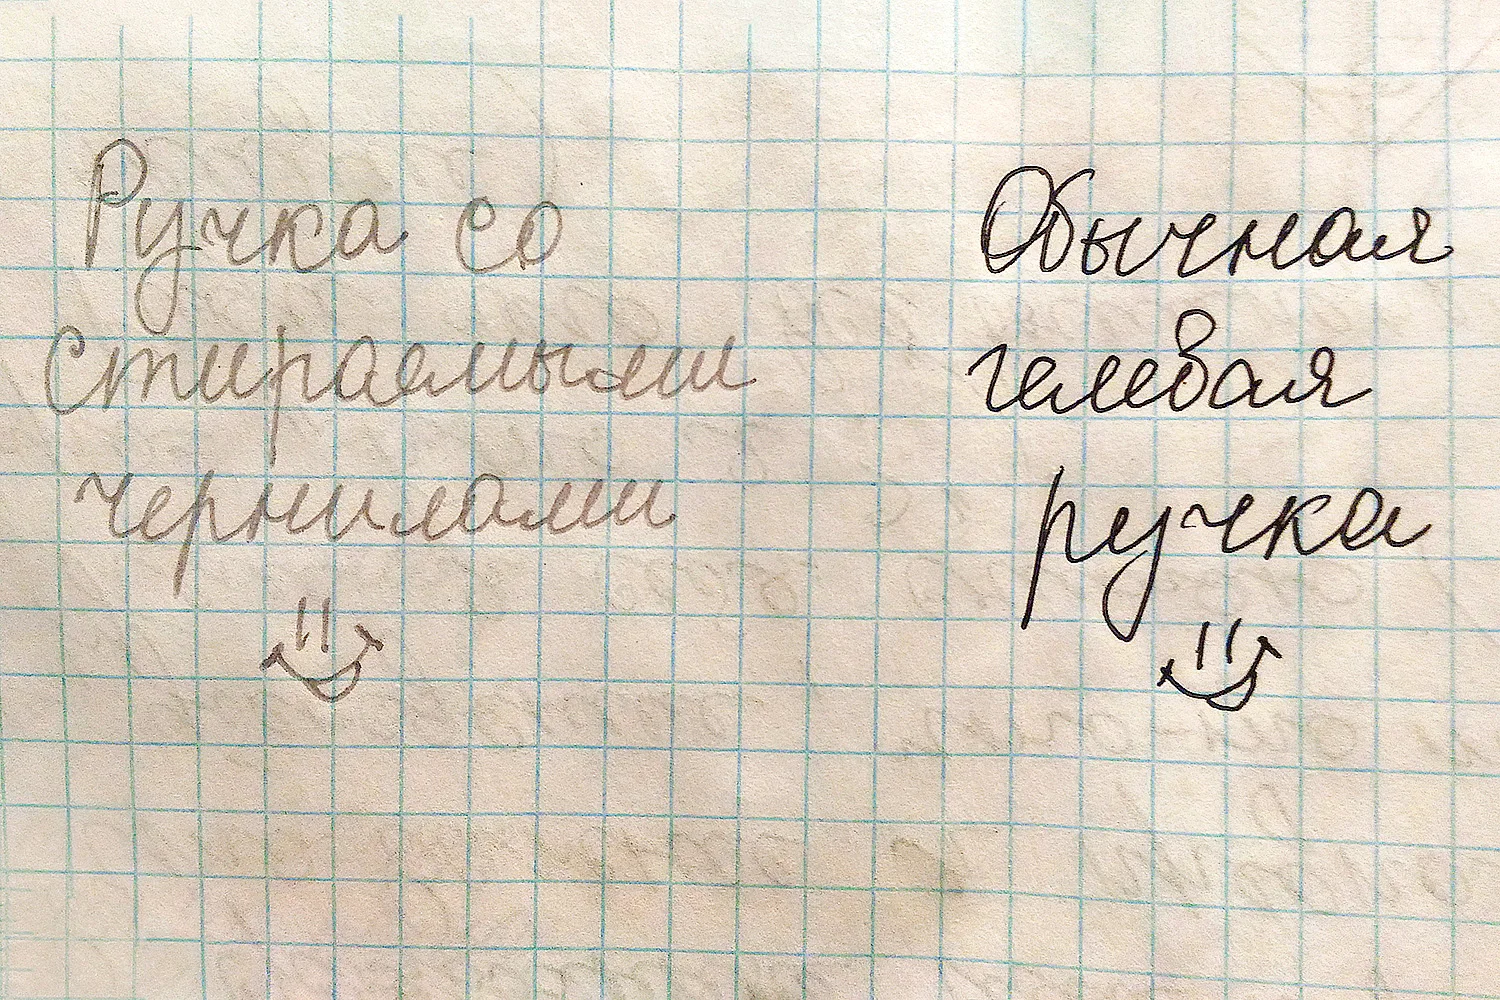 Ручка со
стираемыми
чернилами
Обычная
гелевая
ручка